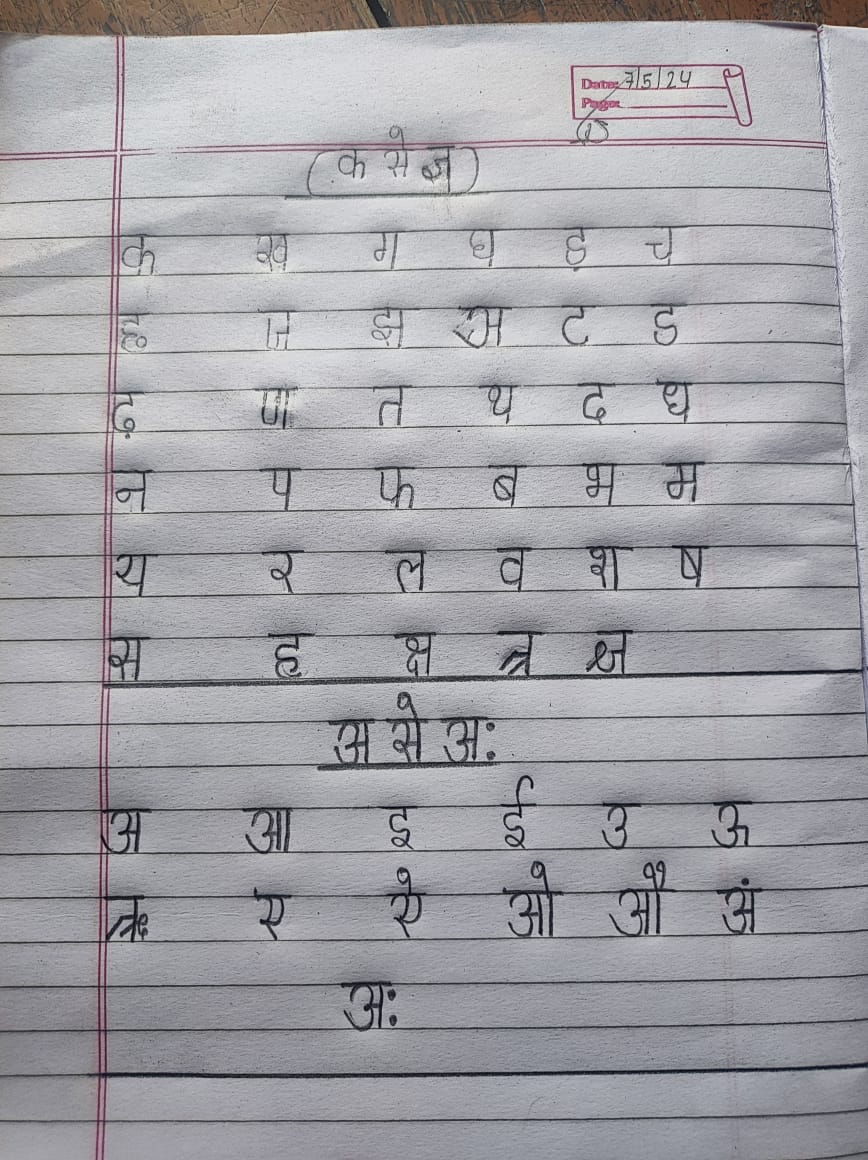 Date: 7/5/24
Page:
(क से ज्ञ)
क ख ग घ ङ च
छ ज झ ञ ट ड
ढ़ ण त थ द ध
न प फ ब भ म
य र ल व श ष
स ह क्ष त्र ज्ञ
अ से अः
अ आ इ ई उ ऊ
ऋ ए ऐ ओ औ अं
अः